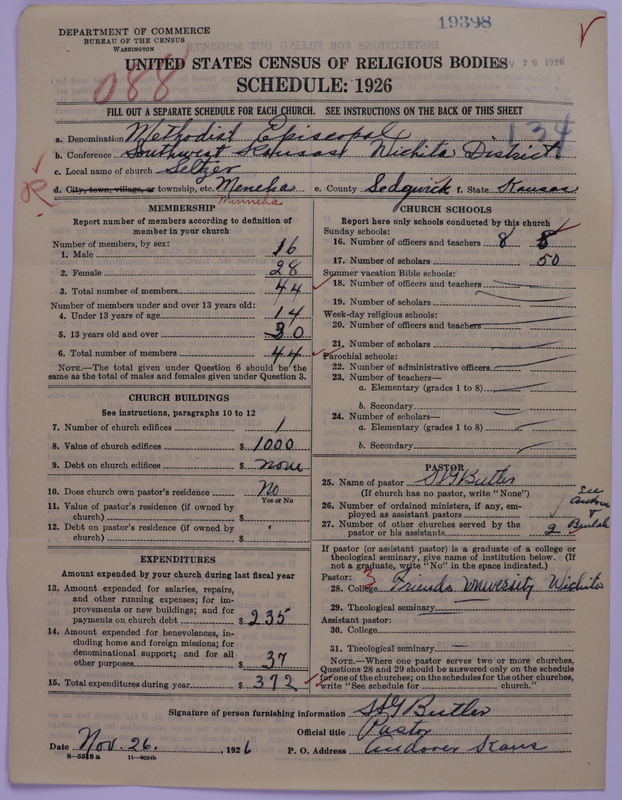 19398
DEPARTMENT OF COMMERCE
BUREAU OF THE CENSUS
WASHINGTON
UNITED STATES CENSUS OF RELIGIOUS BODIES
NOV 29 1926
SCHEDULE: 1926
088
FILL OUT A SEPARATE SCHEDULE FOR EACH CHURCH. SEE INSTRUCTIONS ON THE BACK OF THIS SHEET
134
a. Denomination Methodist Episcopal
b. Conference Southwest Kansas Wichita District
c. Local name of church Seltzer
d. City, town, village, or township, etc. Meneha e. County Sedgwick f. State Kansas
Minneha
MEMBERSHIP
Report number of members according to definition of
member in your church
Number of members, by sex:
1. Male 16
2. Female 28
3. Total number of members 44
Number of members under and over 13 years old:
4. Under 13 years of age 14
5. 13 years old and over 30
6. Total number of members 44
NOTE.—The total given under Question 6 should be the
same as the total of males and females given under Question 3.
CHURCH BUILDINGS
See instructions, paragraphs 10 to 12
7. Number of church edifices 1
8. Value of church edifices $ 1000
9. Debt on church edifices $ none
10. Does church own pastor's residence No
Yes or No
11. Value of pastor's residence (if owned by
church) $
12. Debt on pastor's residence (if owned by
church) $
EXPENDITURES
Amount expended by your church during last fiscal year
13. Amount expended for salaries, repairs,
and other running expenses; for im-
provements or new buildings; and for
payments on church debt $ 235
14. Amount expended for benevolences, in-
cluding home and foreign missions; for
denominational support; and for all
other purposes $ 37
15. Total expenditures during year $ 372
CHURCH SCHOOLS
Report here only schools conducted by this church
Sunday schools:
16. Number of officers and teachers 8 8
17. Number of scholars 50
Summer vacation Bible schools:
18. Number of officers and teachers
19. Number of scholars
Week-day religious schools:
20. Number of officers and teachers
21. Number of scholars
Parochial schools:
22. Number of administrative officers
23. Number of teachers—
a. Elementary (grades 1 to 8)
b. Secondary
24. Number of scholars—
a. Elementary (grades 1 to 8)
b. Secondary
PASTOR
25. Name of pastor S G Butler
(If church has no pastor, write "None")
See
Andover
&
Beulah
26. Number of ordained ministers, if any, em-
ployed as assistant pastors
27. Number of other churches served by the
pastor or his assistants 2
If pastor (or assistant pastor) is a graduate of a college or
theological seminary, give name of institution below. (If
not a graduate, write "No" in the space indicated.)
Pastor: 3
28. College Friends University Wichita
29. Theological seminary
Assistant pastor:
30. College
31. Theological seminary
NOTE.—Where one pastor serves two or more churches,
Questions 28 and 29 should be answered only on the schedule
for one of the churches; on the schedules for the other churches,
write "See schedule for church."
Signature of person furnishing information S G Butler
Official title Pastor
Date Nov. 26, 1926 P. O. Address Andover Kans
8—5518 a 11—9054b